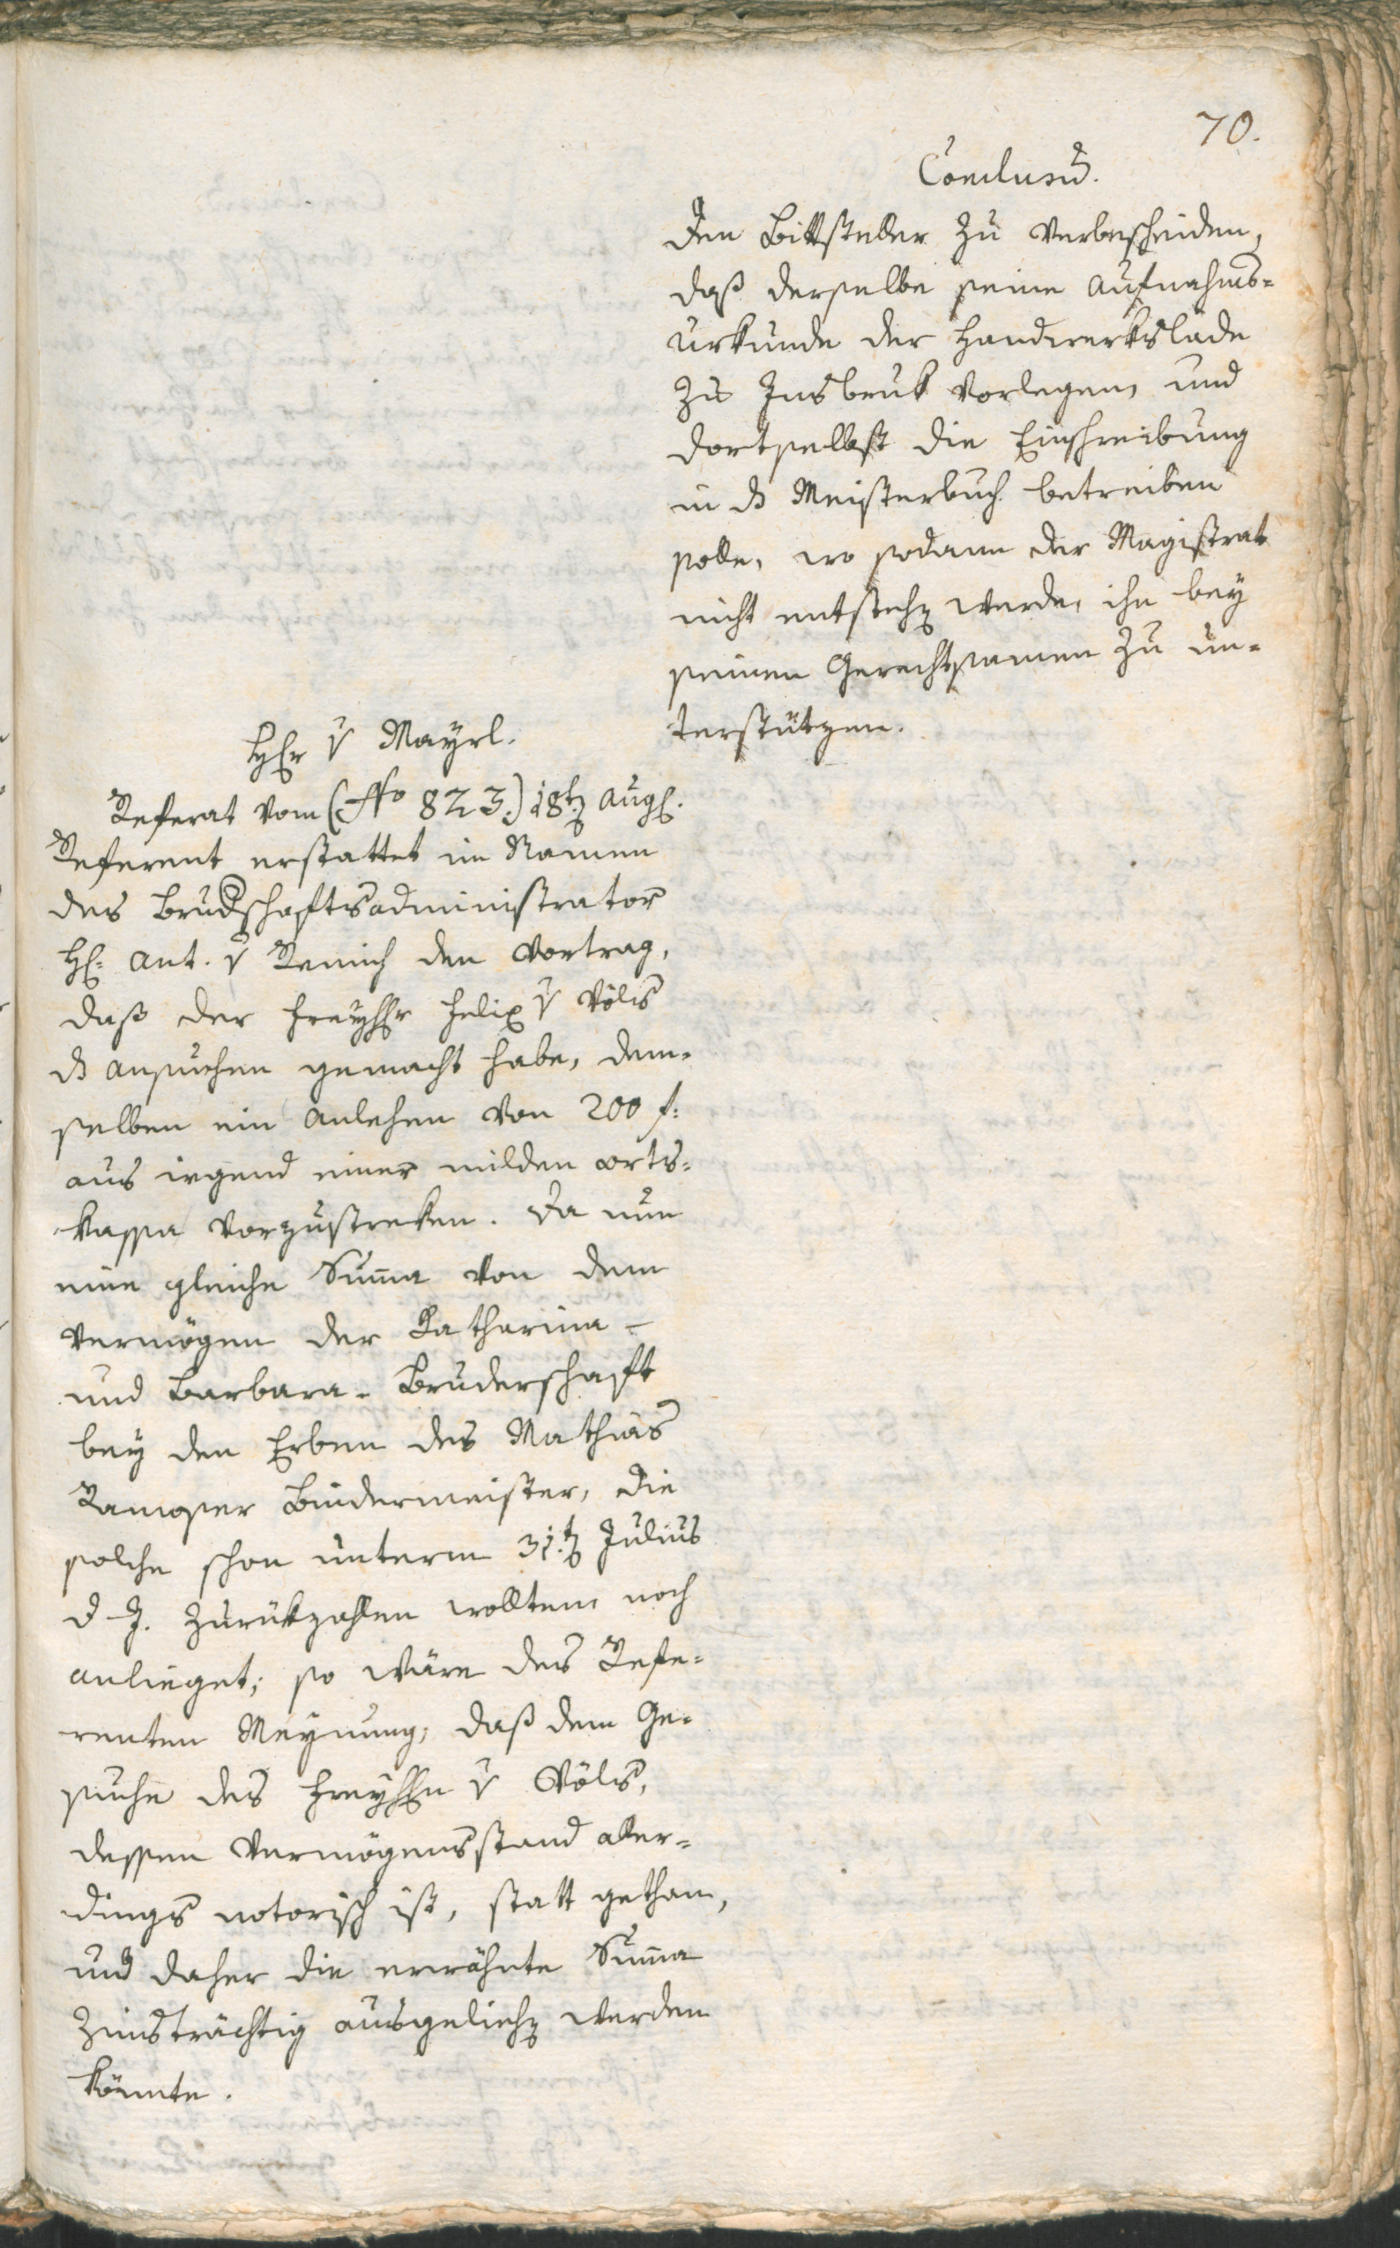 70.
Conclusum̄.
Den Bittsteller zu verbescheiden,
daß derselbe seine Aufnahms-
urkunde der Handwerkslade
zu Insbruk vorlegen, und
dortselbst die Einschreibung
in ds Meisterbuch betreiben
solle, wo sodann der Magistrat
nicht entstehen werde, ihn bey
seinen Gerechtsamen zu un-
terstützen.
Herr v Mayrl.
Referat vom (Nro 823.) 18ten Aug.
Referent erstattet im Namen
des Brudschaftsadministrator
H. Ant. v Remich den Vortrag,
daß der Freyherr Felix v Völs
ds Ansuchen gemacht habe, dem-
selben ein Anlehen von 200 f:
aus irgend einer milden Orts-
kassa vorzustreken. Da nun
eine gleiche Sum̄a von dem
Vermögen der Katharina-
und Barbara-Bruderschaft
bey den Erben des Mathias
Ramoser Bindermeister, die
solche schon unterm 31ten Julius
d. J. zurükzahlen wollten, noch
anlieget; so wäre des Refe-
renten Meynung, daß dem Ge-
suche des Freyherrn v Völs,
dessen Vermögensstand aller-
dings notorisch ist, statt gethan,
und daher die erwähnte Sum̄a
zinsträchtig ausgeliehen werden
könnte.